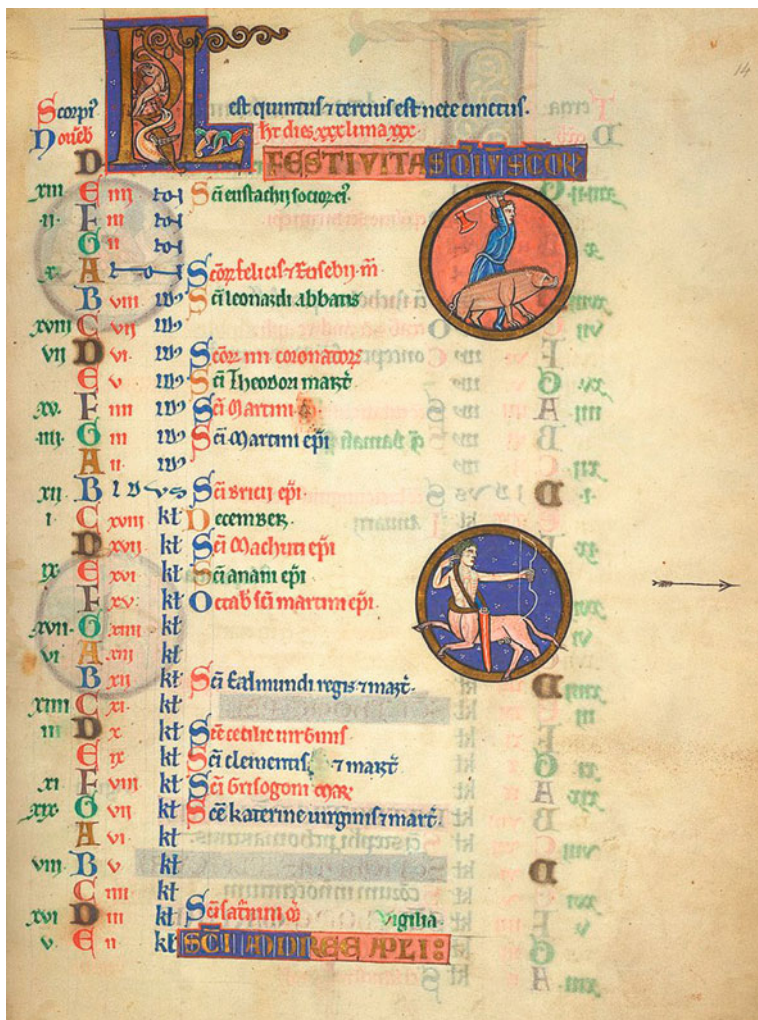 14
Scorpi⁹ est quintus ⁊ tercius est nece cinctus.
Noueb KL ht dies xxx luna xxx
D FESTIVITAS OĪUM SCOR
xiii E iiii no- Sci eustachii socioꝝ ei⁹.
ii F iii no-
G ii no-
x A Scoꝝ felicis ⁊ Eusebii m̄
B viii id' Sci leonardi abbatis
xviii C vii id'
vii D vi id' Scoꝝ iiii coronatoꝝ
E v id' Sci Theodori mart̄
xv F iiii id' Sci Martini
iiii G iii id' Sci Martini epi
A ii id'
xii B IDVS Sci bricii epi
i C xviii kl December
D xvii kl Sci Machuti epi
ix E xvi kl Sci aniani epi
F xv kl Octab̄ sci martini epi
xvii G xiiii kl
vi A xiii kl
B xii kl Sci Eadmundi regis ⁊ mart̄
xiiii C xi kl
iii D x kl Sce cecilie uirginis
E ix kl Sci clementis ⁊ mart̄
xi F viii kl Sci Grisogoni mar
xix G vii kl Sce katerine uirginis ⁊ mart̄
A vi kl
viii B v kl
C iiii kl
xvi D iii kl Sci saturnini m̄ Vigilia
v E ii kl SCI ANDREE APLI: